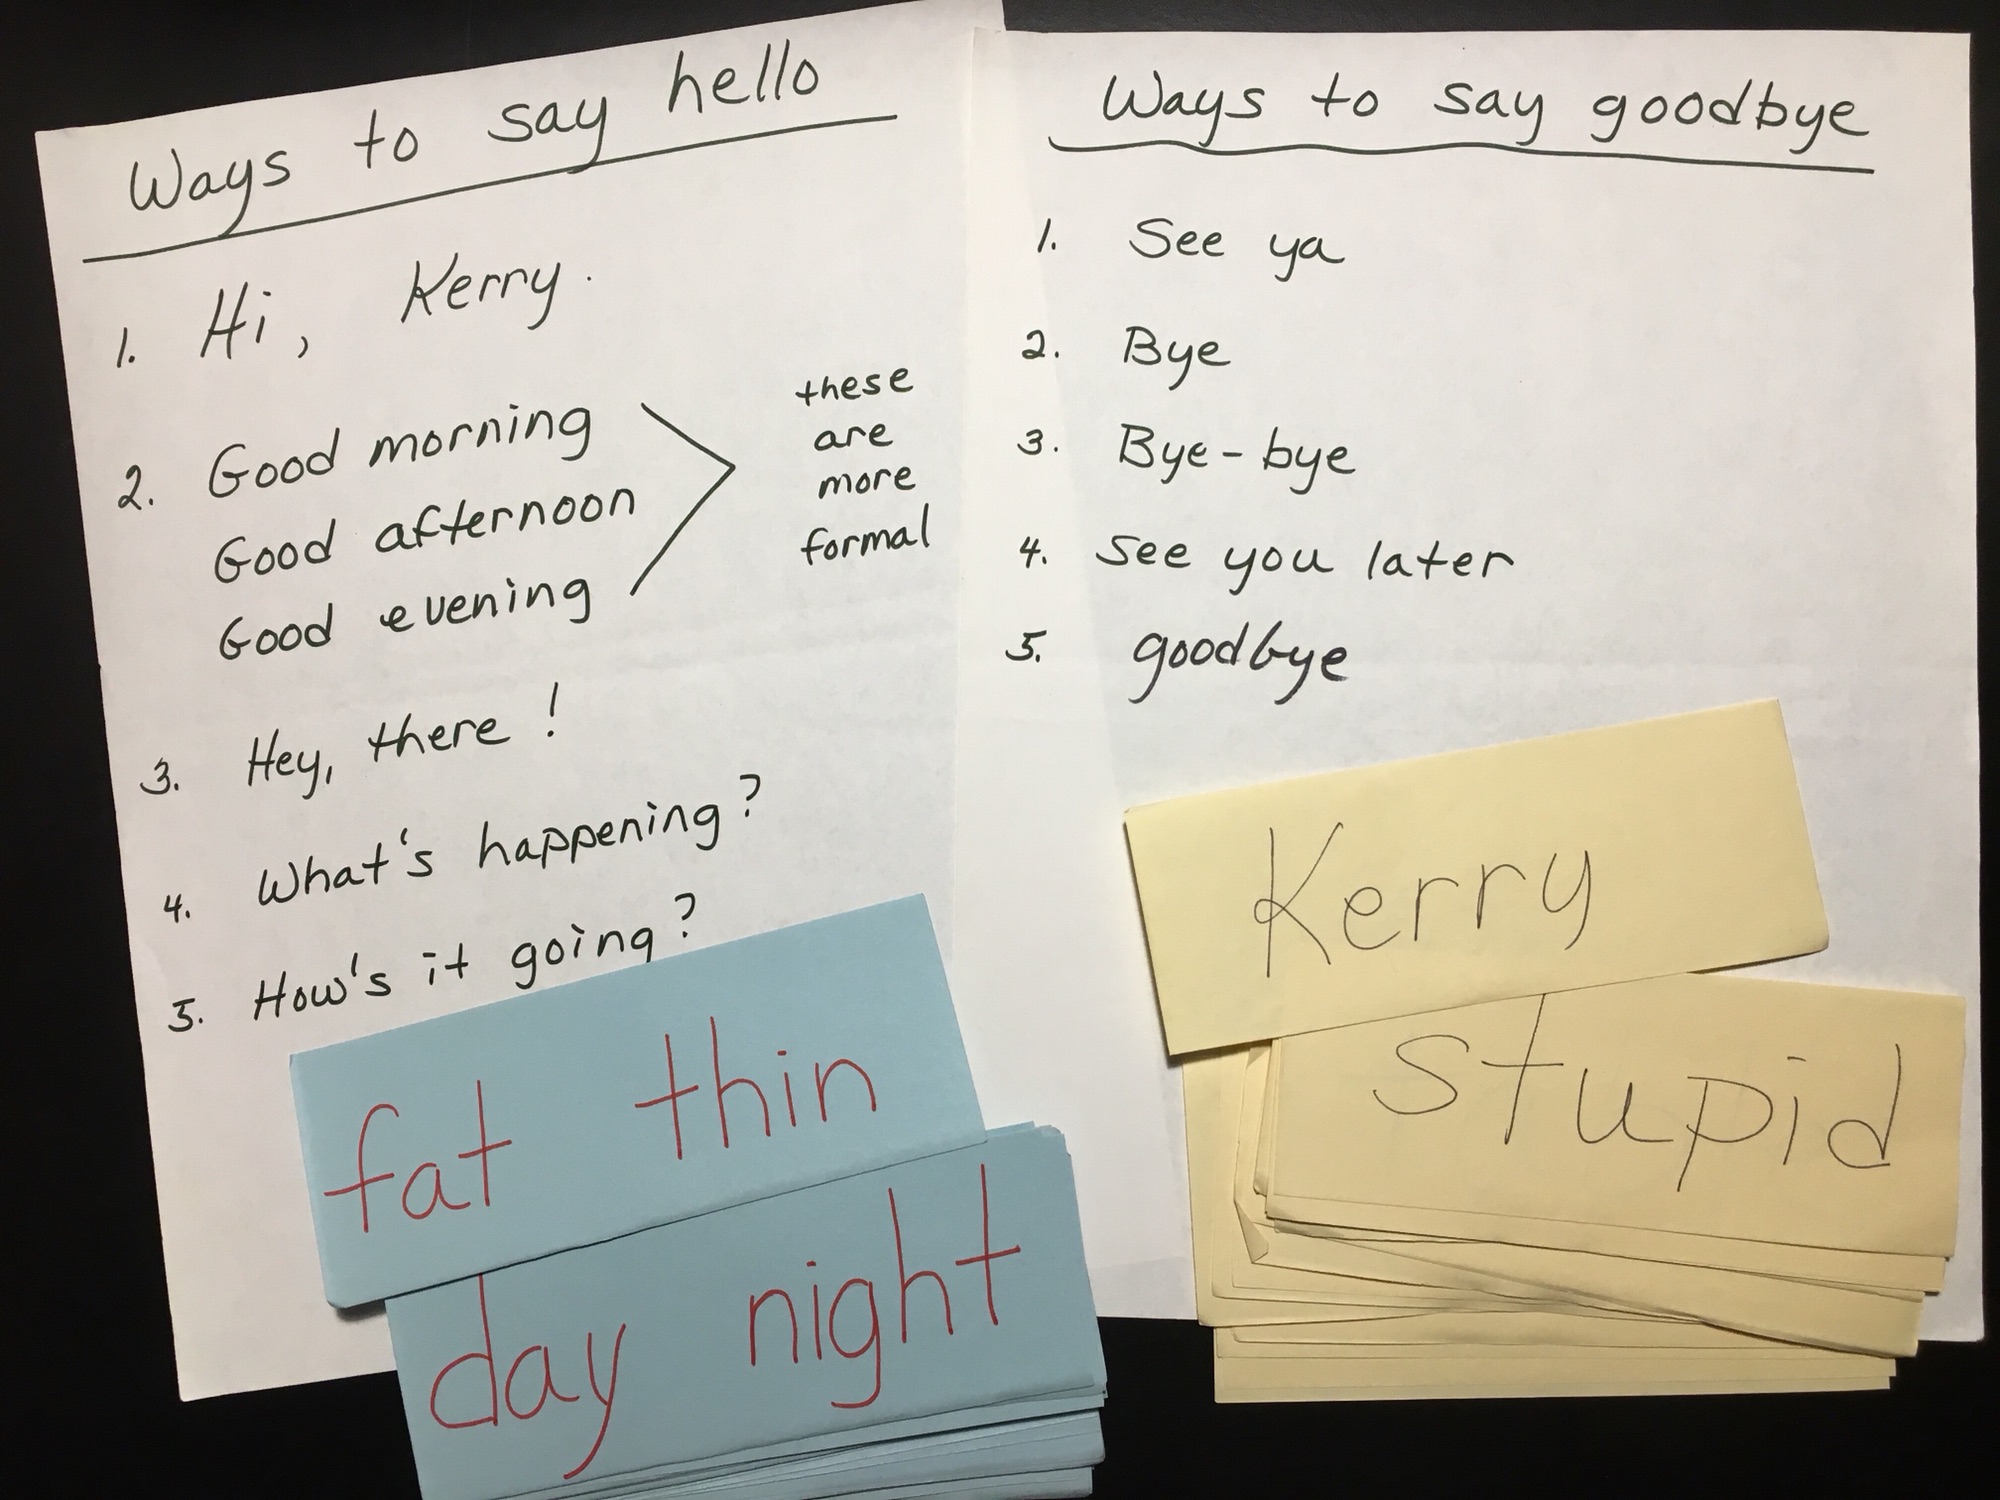 Ways to say hello
1. Hi, Kerry.
2. Good morning
Good afternoon
Good evening
these
are
more
formal
3. Hey, there!
4. What's happening?
5. How's it going?
Ways to say goodbye
1. See ya
2. Bye
3. Bye-bye
4. See you later
5. goodbye
fat thin
day night
Kerry
stupid